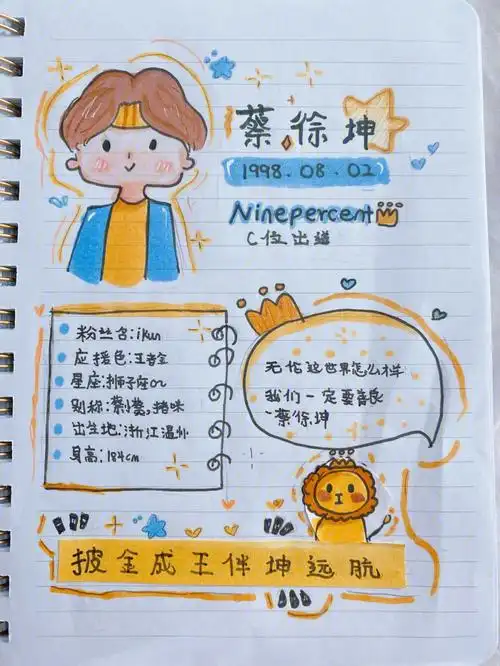 蔡徐坤
1998.08.02
Ninepercent
C位出道
粉丝名:ikun
应援色:王者金
星座:狮子座
别称:蔡小葵,猪咪
出生地:浙江温州
身高:184cm
无论这世界怎么样
我们一定要善良
~蔡徐坤
披金成王伴坤远航